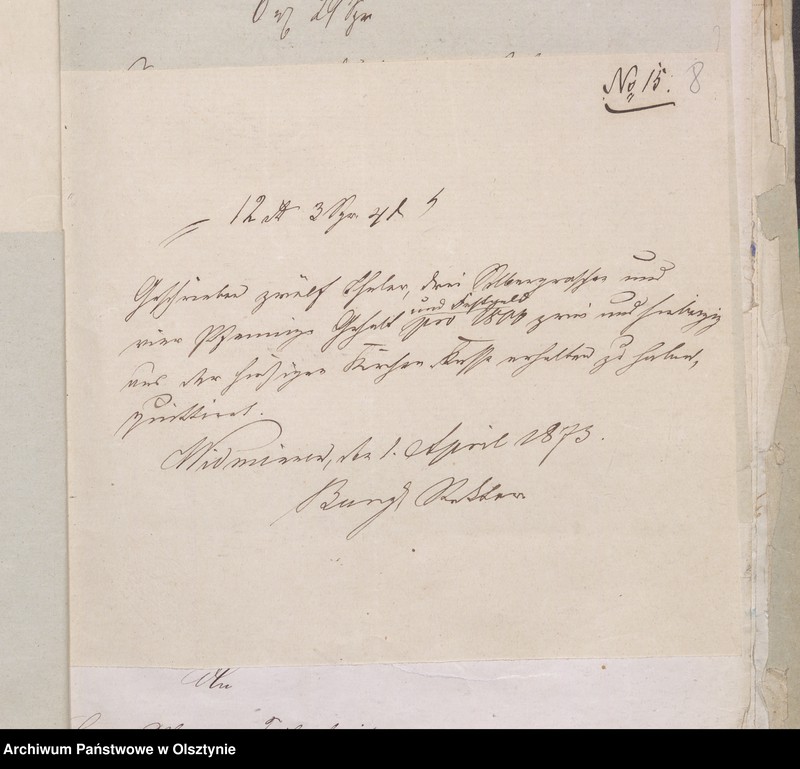 24 Sgr
No 15. 8
12 rt 3 Sgr. 4 d
Geschrieben zwölf Thaler, drei Silbergroschen und
vier Pfennige Gehalt und Festgeld pro 18 zwei und siebenzig
aus der hiesigen Kirchen Kasse erhalten zu haben,
quittirt.
Widminnen, den 1. April 1873.
Rektor
An
Archiwum Państwowe w Olsztynie